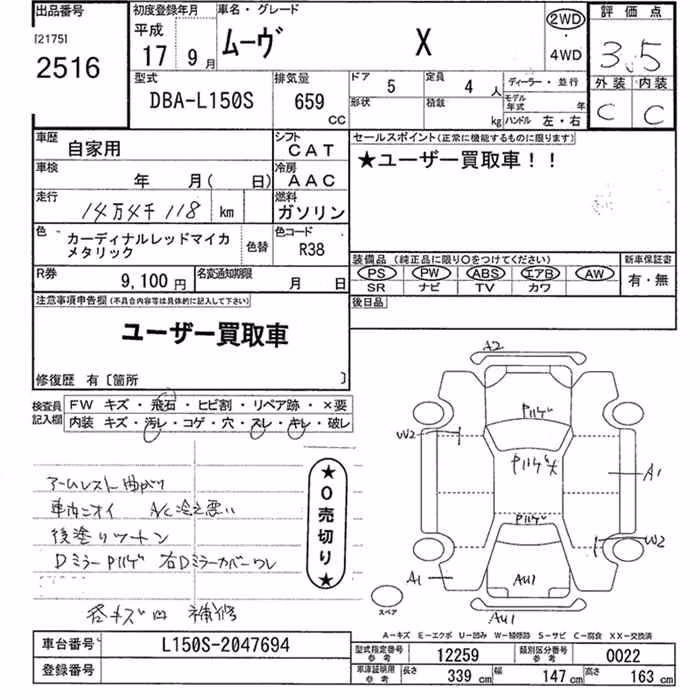 出品番号
[2175]
2516
初度登録年月
平成
17年 9月
車名・グレード
ムーヴ X
2WD
・
4WD
評価点
3.5
外装 内装
C C
型式
DBA-L150S
排気量
659
CC
ドア 5
定員 4 人
形状
積載 kg
ディーラー・並行
モデル年式 年
ハンドル 左・右
車歴
自家用
シフト
CAT
車検
年 月( 日)
冷房
AAC
走行
14万4千118 km
燃料
ガソリン
色
カーディナルレッドマイカ
メタリック
色替
色コード
R38
R券
9,100 円
名変通知期限
月 日
セールスポイント(正常に機能するものに限ります)
★ユーザー買取車!!
装備品 (純正品に限り○をつけてください)
PS PW ABS エアB AW
SR ナビ TV カワ
新車保証書
有・無
後日品
注意事項申告欄(不具合内容等は具体的に記入して下さい)
ユーザー買取車
修復歴 有〔箇所 〕
検査員
記入欄
FW キズ・飛石・ヒビ割・リペア跡・×要
内装 キズ・汚レ・コゲ・穴・スレ・キレ・破レ
アームレスト曲がり
車内ニオイ A/C冷え悪い
後塗りツートン
DミラーPハゲ 右Dミラーカバーワレ
各キズ凹 補修
★0売切り★
A2
Pハゲ
W2
Pハゲ大
A1
Pハゲ
W2
A1
AU1
AU1
スペア
A-キズ E-エクボ U-凹み W-補修跡 S-サビ C-腐食 XX-交換済
車台番号
L150S-2047694
登録番号
型式指定番号
参考
12259
類別区分番号
参考
0022
車庫証明用
参考
長さ 339 cm
幅 147 cm
高さ 163 cm